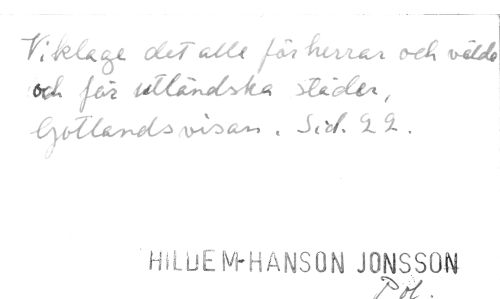 Vi klage det alle för herrar och välde
och för utländska städer,
Gotlandsvisan. Sid. 22.
HILDEM-HANSON JONSSON
Pol.